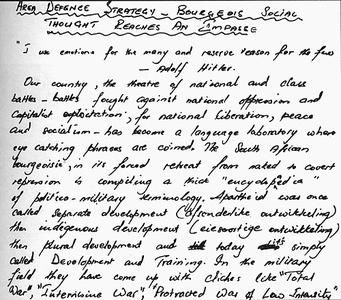 AREA DEFENCE STRATEGY - BOURGEOIS SOCIAL
THOUGHT REACHES AN IMPASSE
"I use emotions for the many and reserve reason for the few
- Adolf Hitler.
Our country, the theatre of national and class
battles - battles fought against national oppression and
Capitalist exploitation, for national liberation, peace
and socialism - has become a language laboratory where
eye catching phrases are coined. The South African
bourgeoisie, in its forced retreat from naked to covert
repression is compiling a thick "encyclopedia"
of politico-military terminology. Apartheid was once
called separate development (afsonderlike ontwikkeling)
then indigenous development (eiesoortige ontwikkeling)
then plural development and today simply
called Development and Training. In the military
field they have come up with cliches like "Total
War", "Internine War", "Protracted War of Low Intensity"